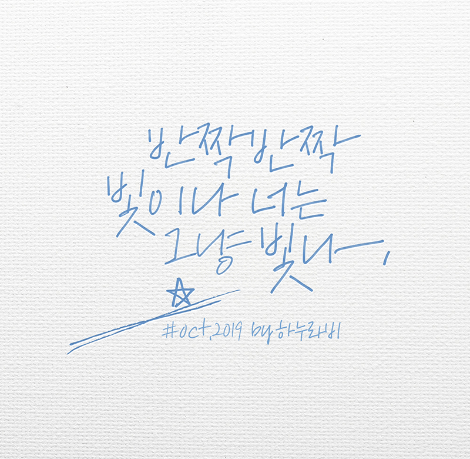 반짝반짝
빛이나 너는
그냥 빛나,
#oct,2019 by 하누라비